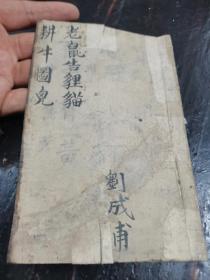 老鼠告貍貓
耕牛圖兒
劉成甫